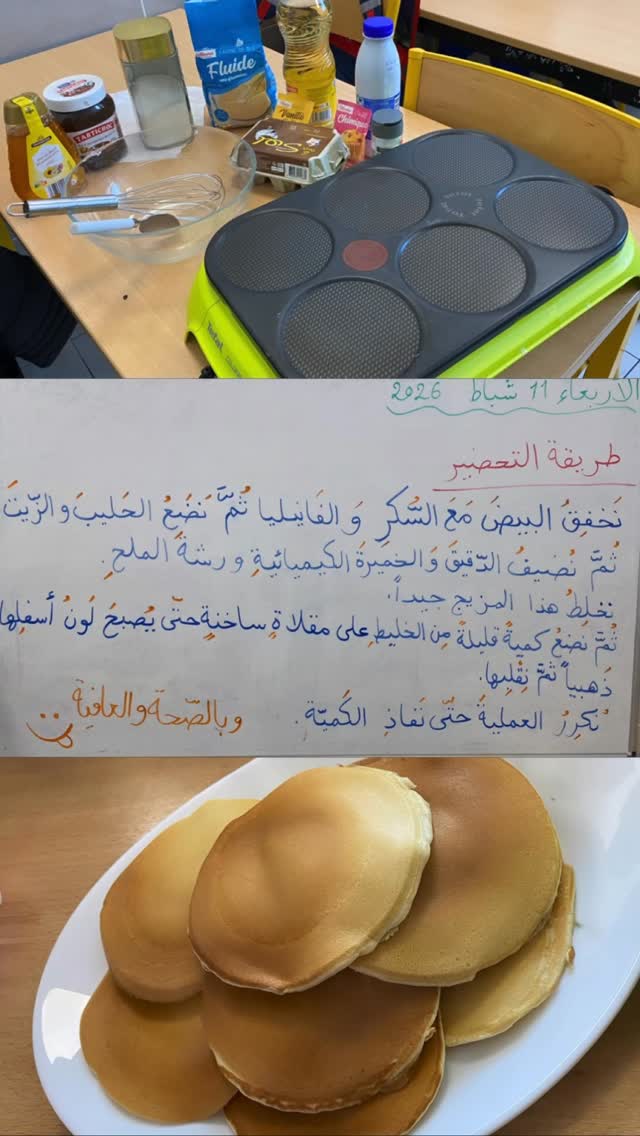 Fluide
Vanille
TARTICHOC
Tefal
الأربعاء 11 شباط 2026
طريقة التحضير
نَخفِقُ البيضَ مَعَ السُّكرِ وَ الفانيليا ثُمَّ نَضَعُ الحَليبَ والزّيتَ
ثُمَّ نُضيفُ الدّقيقَ وَالخَميرَةَ الكيميائيةِ ورشةَ الملحِ.
نخلطُ هذا المزيج جيداً.
ثُمَّ نَضعُ كميةً قليلةً مِن الخليطِ على مقلاةٍ ساخنةٍ حتّى يُصبحَ لَونُ أسفلِها
ذَهبياً ثمَّ نقْلِبها.
نُكرِرُ العمليةَ حتّى نَفاذِ الكَميّة.
وبالصّحة والعافية